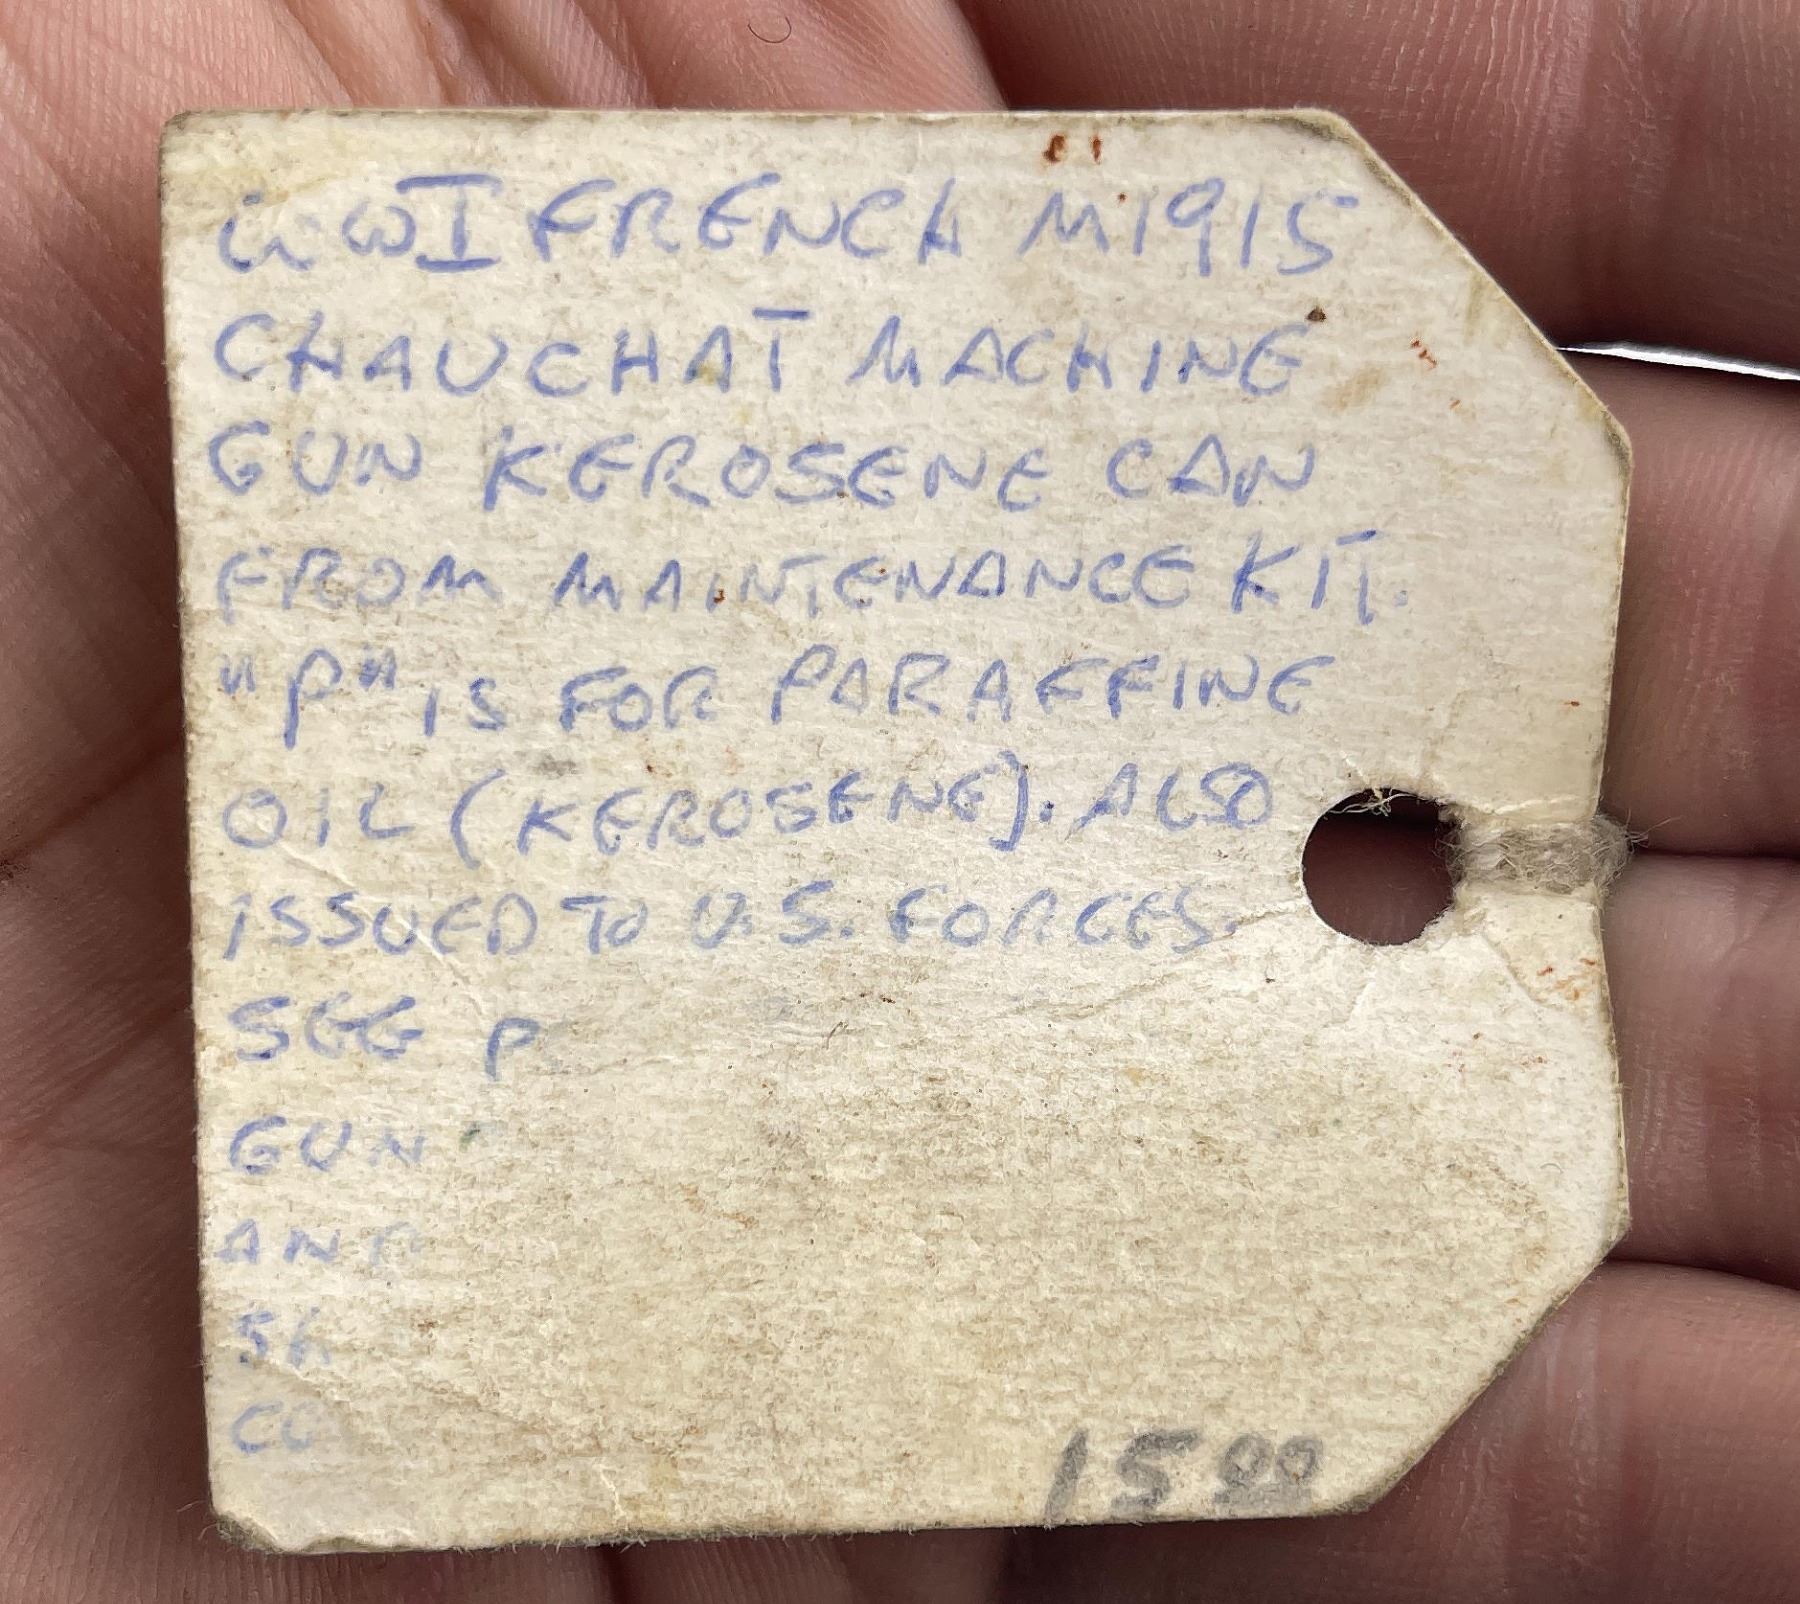 WWI FRENCH M1915
CHAUCHAT MACHINE
GUN KEROSENE CAN
FROM MAINTENANCE KIT.
"P" IS FOR PARAFFINE
OIL (KEROSENE). ALSO
ISSUED TO U.S. FORCES.
SEE P
GUN
AND
CO
15 00